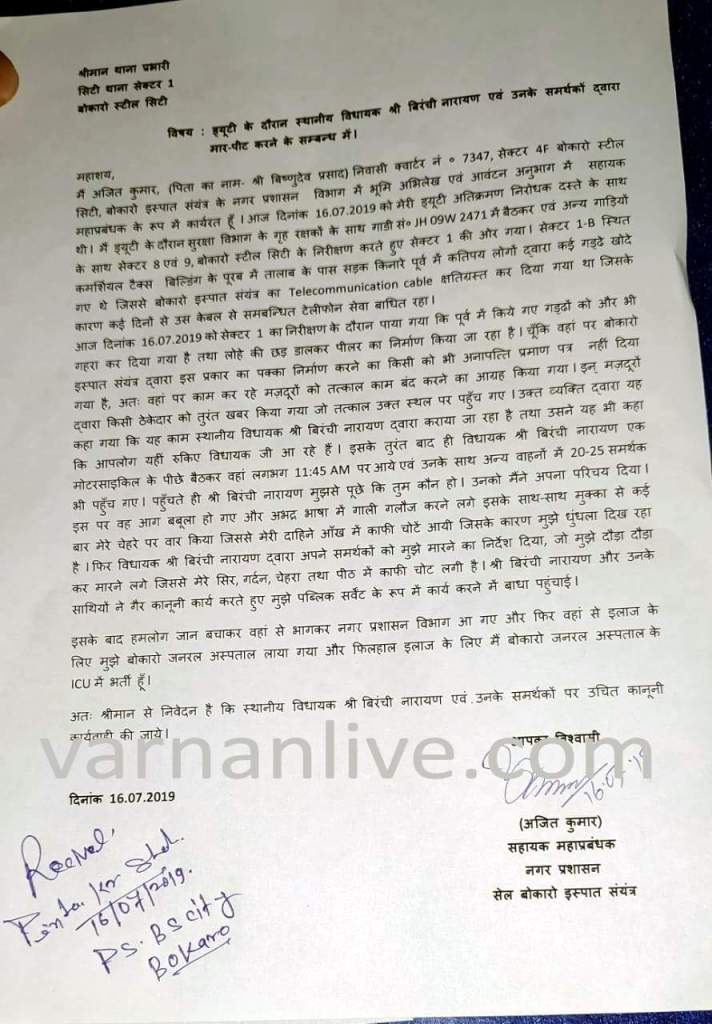 श्रीमान थाना प्रभारी
सिटी थाना सेक्टर 1
बोकारो स्टील सिटी
विषय : ड्यूटी के दौरान स्थानीय विधायक श्री बिरंची नारायण एवं उनके समर्थकों द्वारा
मार-पीट करने के सम्बन्ध में।
महाशय,
मैं अजित कुमार, (पिता का नाम- श्री बिष्णुदेव प्रसाद) निवासी क्वार्टर नं ० 7347, सेक्टर 4F बोकारो स्टील
सिटी, बोकारो इस्पात संयंत्र के नगर प्रशासन विभाग में भूमि अभिलेख एवं आवंटन अनुभाग मै सहायक
महाप्रबंधक के रूप में कार्यरत हूँ । आज दिनांक 16.07.2019 को मेरी ड्यूटी अतिक्रमण निरोधक दस्ते के साथ
थी। मैं ड्यूटी के दौरान सुरक्षा विभाग के गृह रक्षकों के साथ गाडी सं० JH 09W 2471 में बैठकर एवं अन्य गाडियों
के साथ सेक्टर 8 एवं 9, बोकारो स्टील सिटी के निरीक्षण करते हुए सेक्टर 1 की ओर गया। सेक्टर 1-B स्थित
कमर्शियल टैक्स बिल्डिंग के पूरब में तालाब के पास सड़क किनारे पूर्व में कतिपय लोगों द्वारा कई गड्ढे खोदे
गए थे जिससे बोकारो इस्पात संयंत्र का Telecommunication cable क्षतिग्रस्त कर दिया गया था जिसके
कारण कई दिनों से उस केबल से समबन्धित टेलीफोन सेवा बाधित रहा।
आज दिनांक 16.07.2019 को सेक्टर 1 का निरीक्षण के दौरान पाया गया कि पूर्व में किये गए गड्ढों को और भी
गहरा कर दिया गया है तथा लोहे की छड़ डालकर पीलर का निर्माण किया जा रहा है। चूँकि वहां पर बोकारो
इस्पात संयंत्र द्वारा इस प्रकार का पक्का निर्माण करने का किसी को भी अनापत्ति प्रमाण पत्र नहीं दिया
गया है, अतः वहां पर काम कर रहे मज़दूरों को तत्काल काम बंद करने का आग्रह किया गया। इन् मज़दूरों
द्वारा किसी ठेकेदार को तुरंत खबर किया गया जो तत्काल उक्त स्थल पर पहुँच गए । उक्त व्यक्ति द्वारा यह
कहा गया कि यह काम स्थानीय विधायक श्री बिरंची नारायण द्वारा कराया जा रहा है तथा उसने यह भी कहा
कि आपलोग यहीं रुकिए विधायक जी आ रहे हैं । इसके तुरंत बाद ही विधायक श्री बिरंची नारायण एक
मोटरसाइकिल के पीछे बैठकर वहां लगभग 11:45 AM पर आये एवं उनके साथ अन्य वाहनों में 20-25 समर्थक
भी पहुँच गए। पहुँचते ही श्री बिरंची नारायण मुझसे पूछे कि तुम कौन हो। उनको मैंने अपना परिचय दिया।
इस पर वह आग बबूला हो गए और अभद्र भाषा में गाली गलौज करने लगे इसके साथ-साथ मुक्का से कई
बार मेरे चेहरे पर वार किया जिससे मेरी दाहिने आँख में काफी चोटें आयी जिसके कारण मुझे धुंधला दिख रहा
है । फिर विधायक श्री बिरंची नारायण द्वारा अपने समर्थकों को मुझे मारने का निर्देश दिया, जो मुझे दौडा दौडा
कर मारने लगे जिससे मेरे सिर, गर्दन, चेहरा तथा पीठ में काफी चोट लगी है। श्री बिरंची नारायण और उनके
साथियों ने गैर कानूनी कार्य करते हुए मुझे पब्लिक सर्वेंट के रूप में कार्य करने में बाधा पहुंचाई।
इसके बाद हमलोग जान बचाकर वहां से भागकर नगर प्रशासन विभाग आ गए और फिर वहां से इलाज के
लिए मुझे बोकारो जनरल अस्पताल लाया गया और फिलहाल इलाज के लिए मैं बोकारो जनरल अस्पताल के
ICU में भर्ती हूँ।
अतः श्रीमान से निवेदन है कि स्थानीय विधायक श्री बिरंची नारायण एवं उनके समर्थकों पर उचित कानूनी
कार्यवाही की जाये।
varnanlive.com
आपका विश्वासी
16.07.19
दिनांक 16.07.2019
(अजित कुमार)
सहायक महाप्रबंधक
नगर प्रशासन
सेल बोकारो इस्पात संयंत्र
Received,
Kr
16/07/2019.
PS. BS city
BOKARO